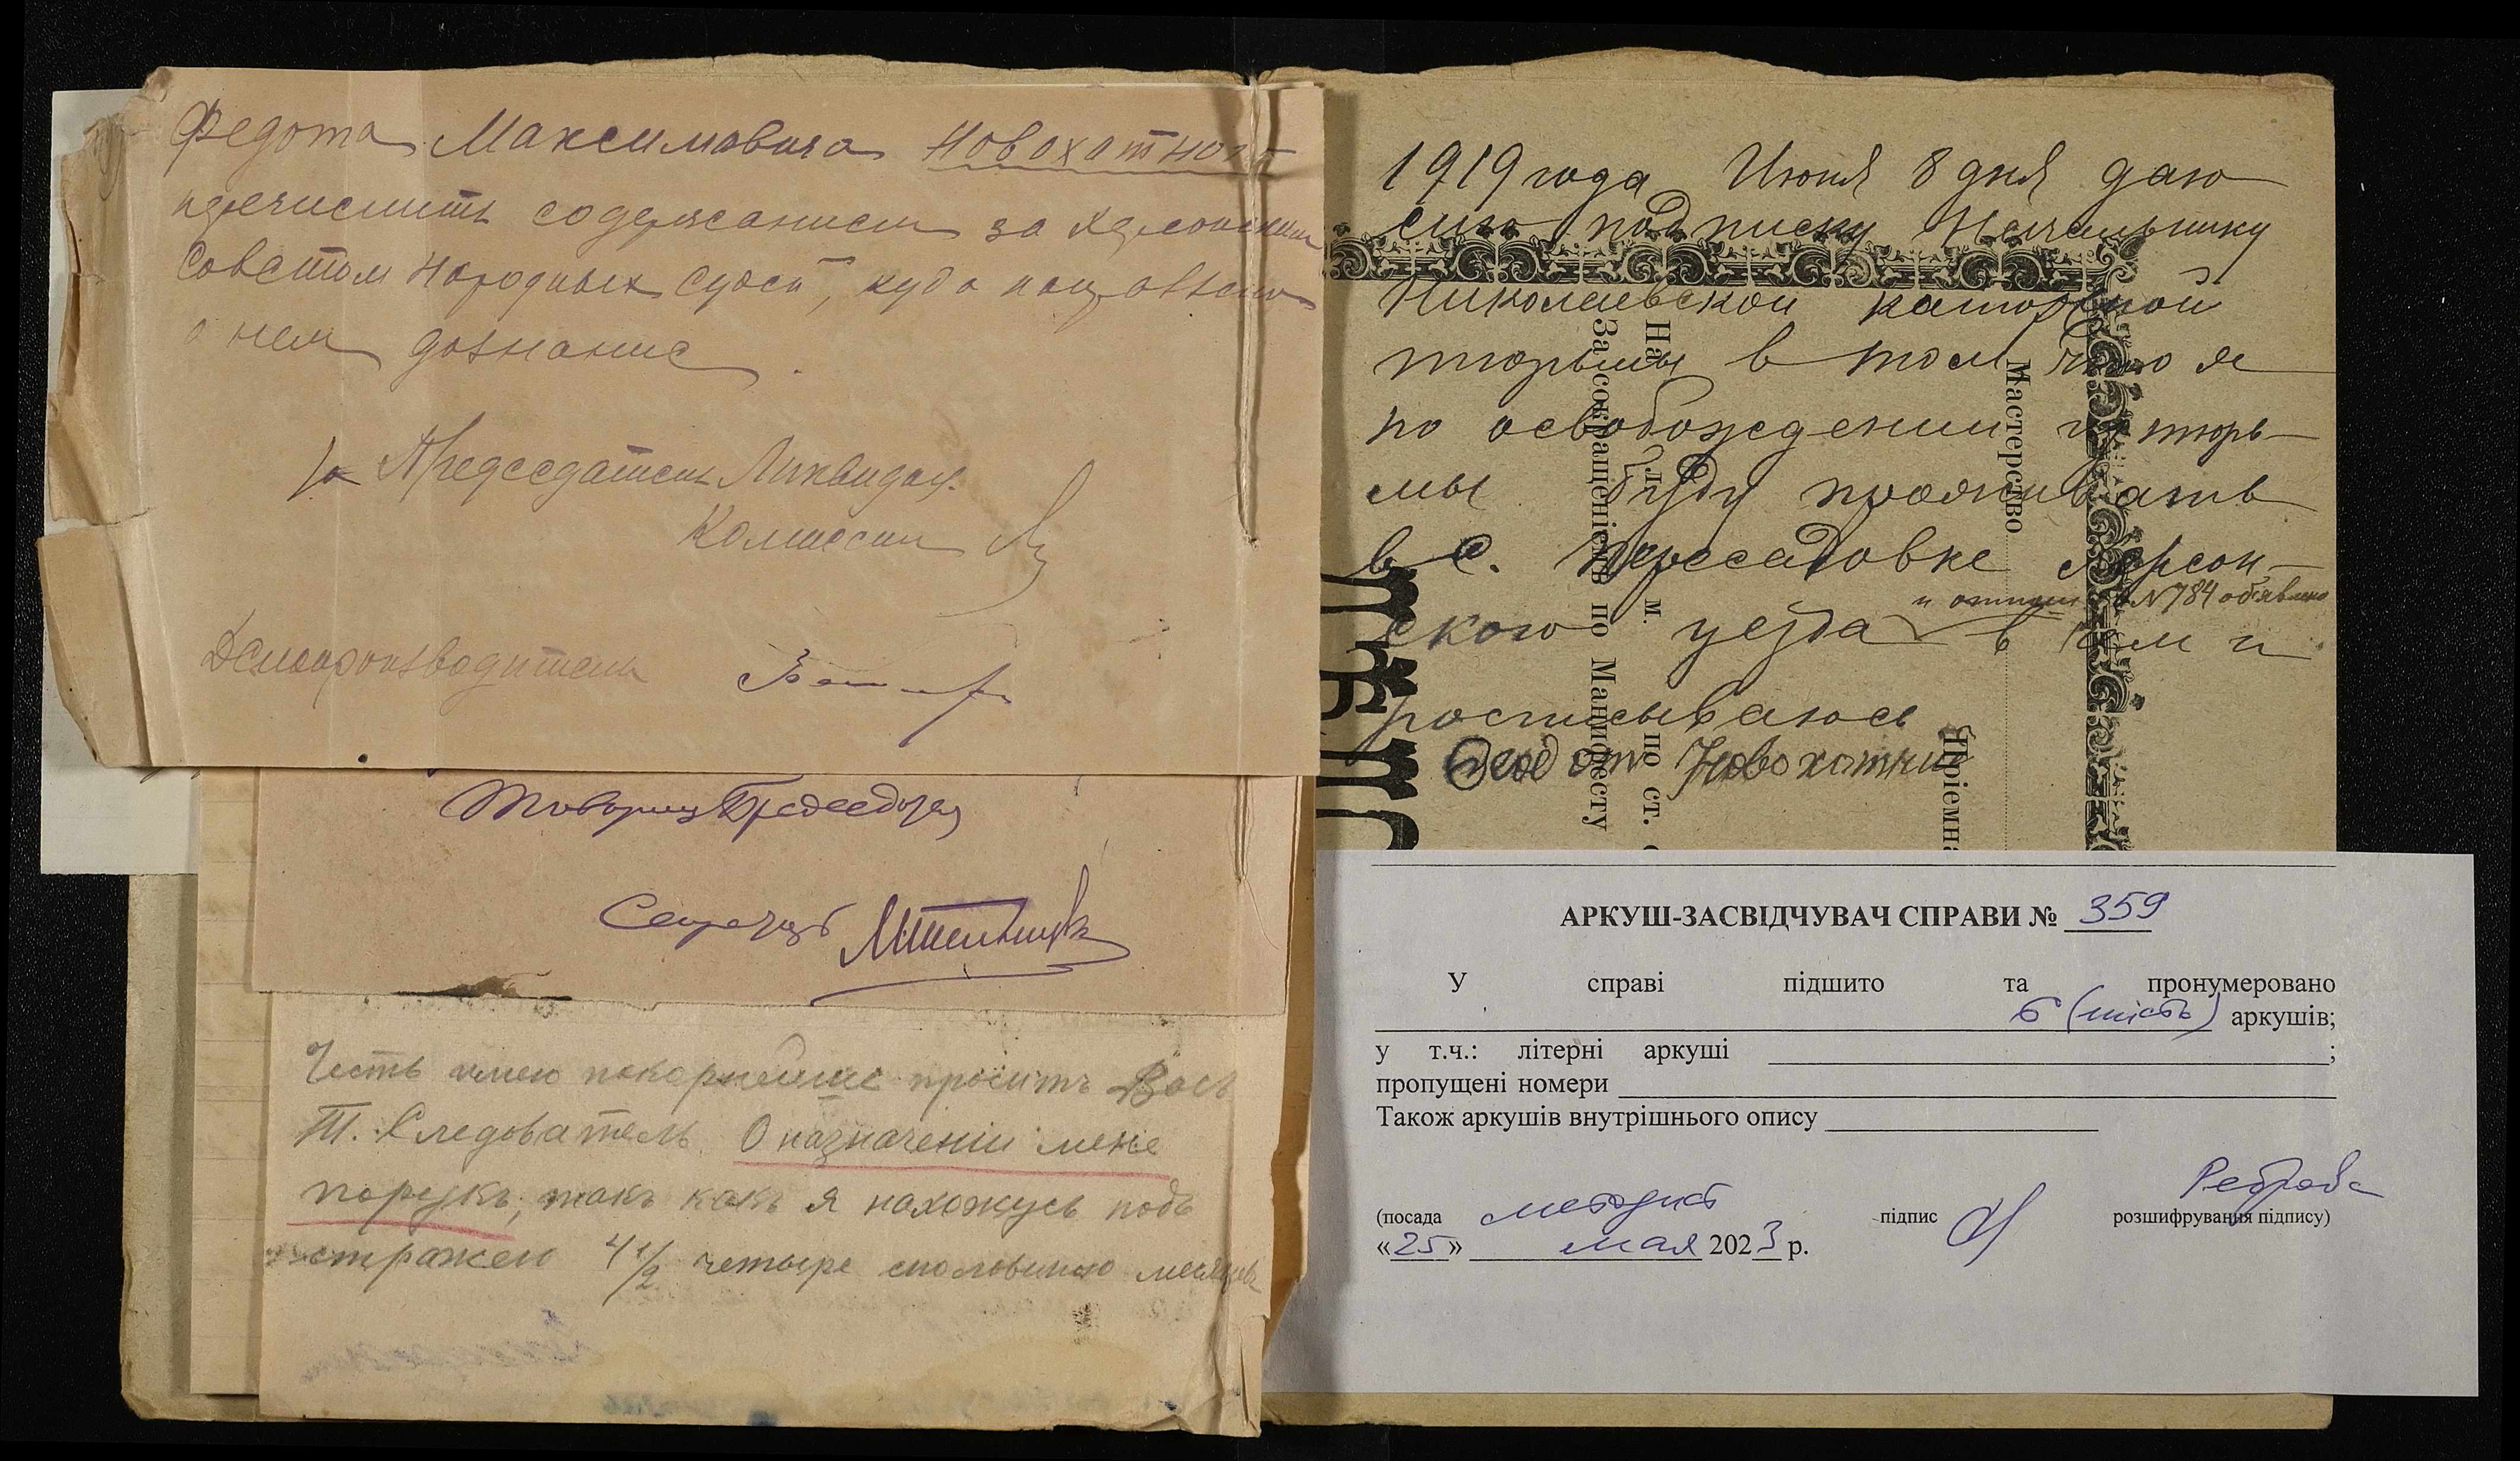 Федота Максимовича Новохатного
перечислить содержанием за Херсонским
Советом Народных Судей, куда направлено
о нем дознание.
За Председателя Ликвидац.
Комиссии
Делопроизводитель
Товарищ Председателя
Секретарь
Честь имею покорнейше просить Вас
Т. Следователь О назначеніи мене
порукъ, такъ какъ я нахожусь подъ
стражею 4 1/2 четыре споловиною месяцев
1919 года Июня 8 дня даю
сию подписку Начальнику
Николаевской каторжной
тюрьмы в том что я
по освобождении из тюрь-
мы буду проживать
в с. Пересадовке Херсон-
и отнош. N 784 объявлено
ского уезда в чем и
росписываюсь
Федот Новохатний
На л. м. по ст.
За сокращеніемъ по Манифесту
Мастерство
Пріемна
АРКУШ-ЗАСВІДЧУВАЧ СПРАВИ № 359
У справі підшито та пронумеровано
6 (шість) аркушів;
у т.ч.: літерні аркуші ;
пропущені номери
Також аркушів внутрішнього опису
(посада методист підпис Реброва розшифрування підпису)
«25» мая 2023 р.